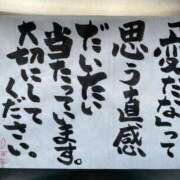 「変だな」って
思う直感
だいたい
当たっています。
大切にして
ください